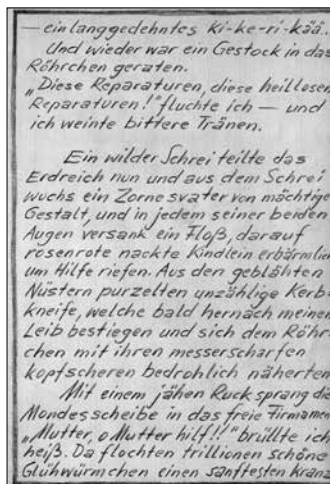 — ein langgedehntes ki-ke-ri-kää..
Und wieder war ein Gestock in das
Röhrchen geraten.
„Diese Reparaturen, diese heillosen
Reparaturen!" fluchte ich — und
ich weinte bittere Tränen.
Ein wilder Schrei teilte das
Erdreich nun und aus dem Schrei
wuchs ein Zornesvater von mächtige
Gestalt, und in jedem seiner beiden
Augen versank ein Floß, darauf
rosenrote nackte Kindlein erbärmlich
um Hilfe riefen. Aus den geblähten
Nüstern purzelten unzählige Kerb-
kneife, welche bald hernach meinen
Leib bestiegen und sich dem Röhr-
chen mit ihren messerscharfen
kopfscheren bedrohlich näherten
Mit einem jähen Ruck sprang die
Mondesscheibe in das freie Firmamen
„Mutter, o Mutter hilf!!" brüllte ich
heiß. Da flochten trillionen schöne
Glühwürmchen einen sanftesten Kranz